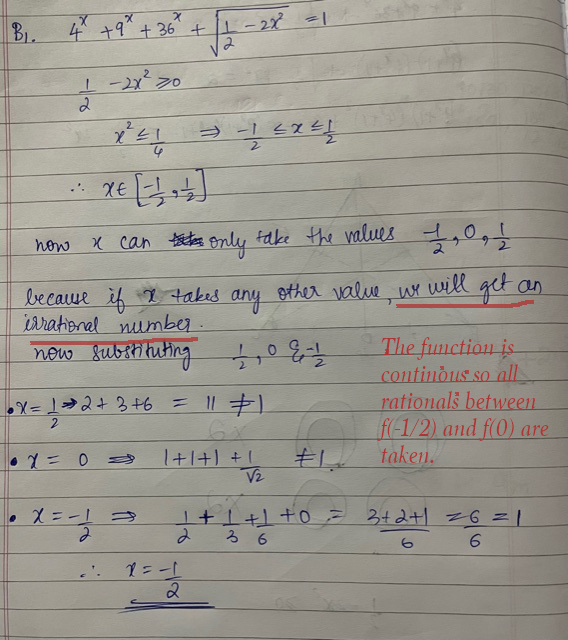 B1. 4^x + 9^x + 36^x + √(1/2 - 2x²) = 1
1/2 - 2x² ≥ 0
x² ≤ 1/4 ⇒ -1/2 ≤ x ≤ 1/2
∴ x ∈ [-1/2, 1/2]
now x can only take the values -1/2, 0, 1/2
because if x takes any other value, we will get an
irrational number.
now substituting 1/2, 0 & -1/2
The function is
continous so all
rationals between
f(-1/2) and f(0) are
taken.
• x = 1/2 ⇒ 2 + 3 + 6 = 11 ≠ 1
• x = 0 ⇒ 1 + 1 + 1 + 1/√2 ≠ 1.
• x = -1/2 ⇒ 1/2 + 1/3 + 1/6 + 0 = (3+2+1)/6 = 6/6 = 1
∴ x = -1/2